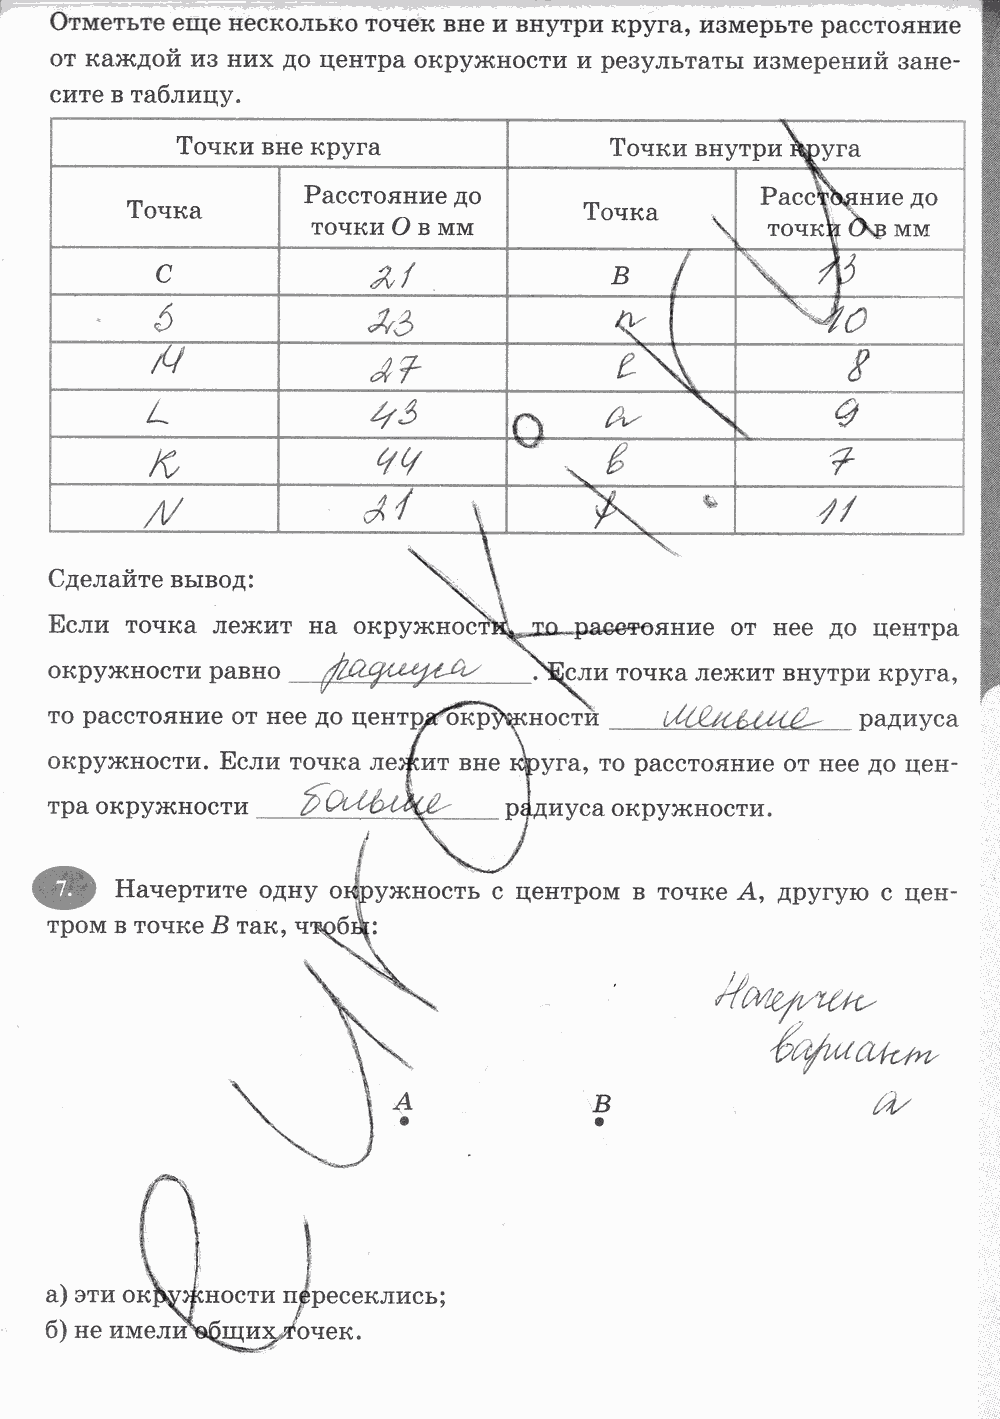 Отметьте еще несколько точек вне и внутри круга, измерьте расстояние
от каждой из них до центра окружности и результаты измерений зане-
сите в таблицу.
Точки вне круга Точки внутри круга
Точка Расстояние до точки O в мм Точка Расстояние до точки O в мм
C 21 B 13
S 23 n 10
M 27 e 8
L 43 a 9
K 44 в 7
N 21 f 11
Сделайте вывод:
Если точка лежит на окружности, то расстояние от нее до центра
окружности равно радиуса. Если точка лежит внутри круга,
то расстояние от нее до центра окружности меньше радиуса
окружности. Если точка лежит вне круга, то расстояние от нее до цен-
тра окружности больше радиуса окружности.
7. Начертите одну окружность с центром в точке A, другую с цен-
тром в точке B так, чтобы:
Начерчен
вариант
а
A B
а) эти окружности пересеклись;
б) не имели общих точек.